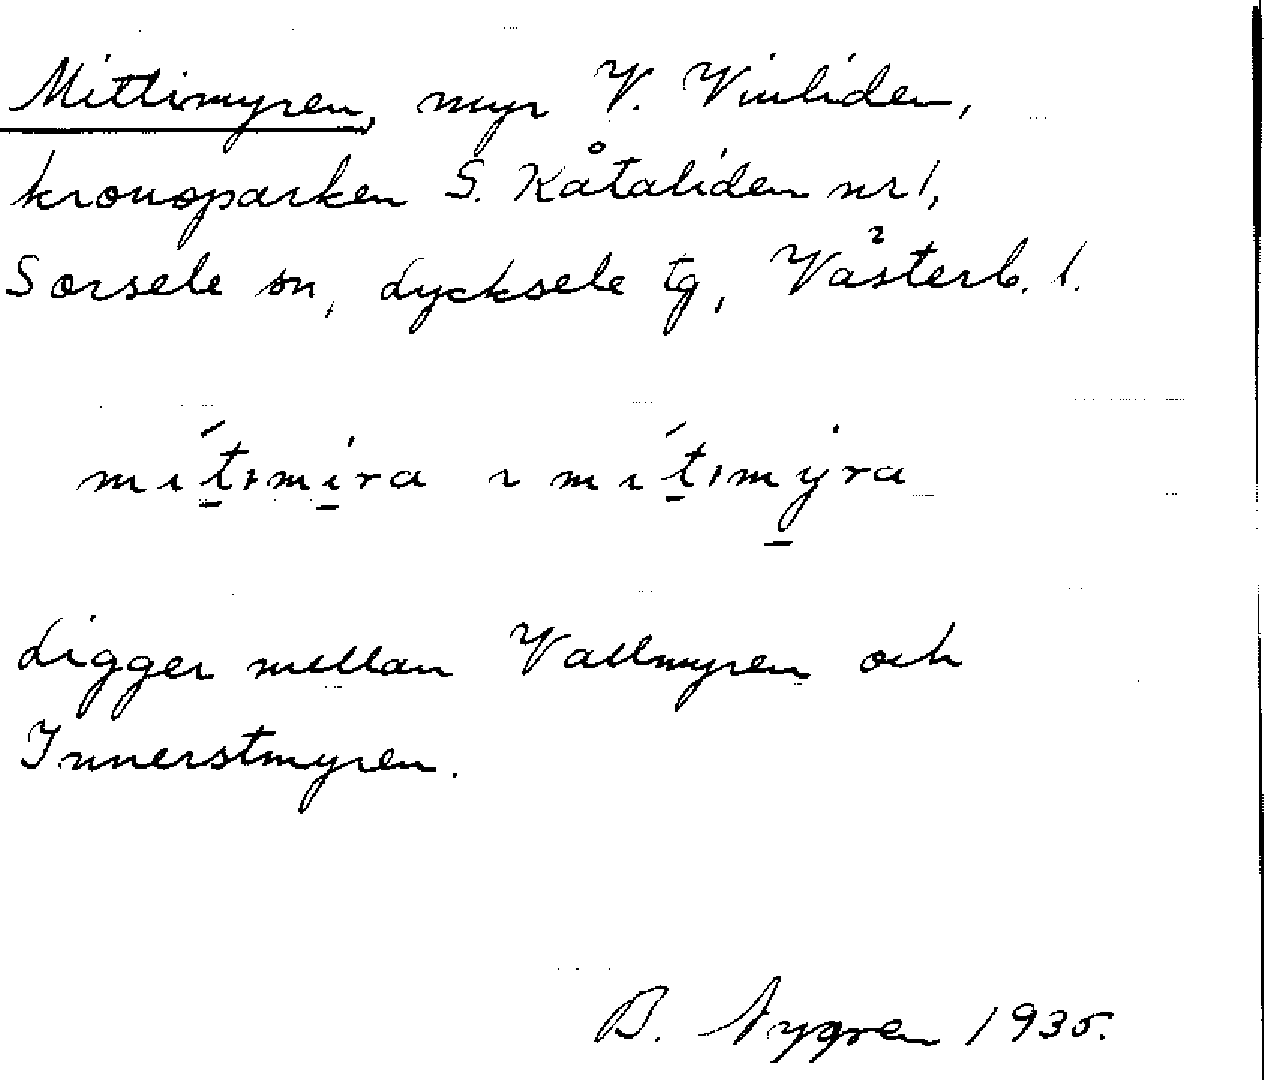 Mittimyren, myr V. Vinliden,
kronoparken S. Kåtaliden nr 1,
Sorsele sn, Lycksele tg, Västerb. l.
Ligger mellan Vallmyren och
Innerstmyren.
B. Nygren 1935.